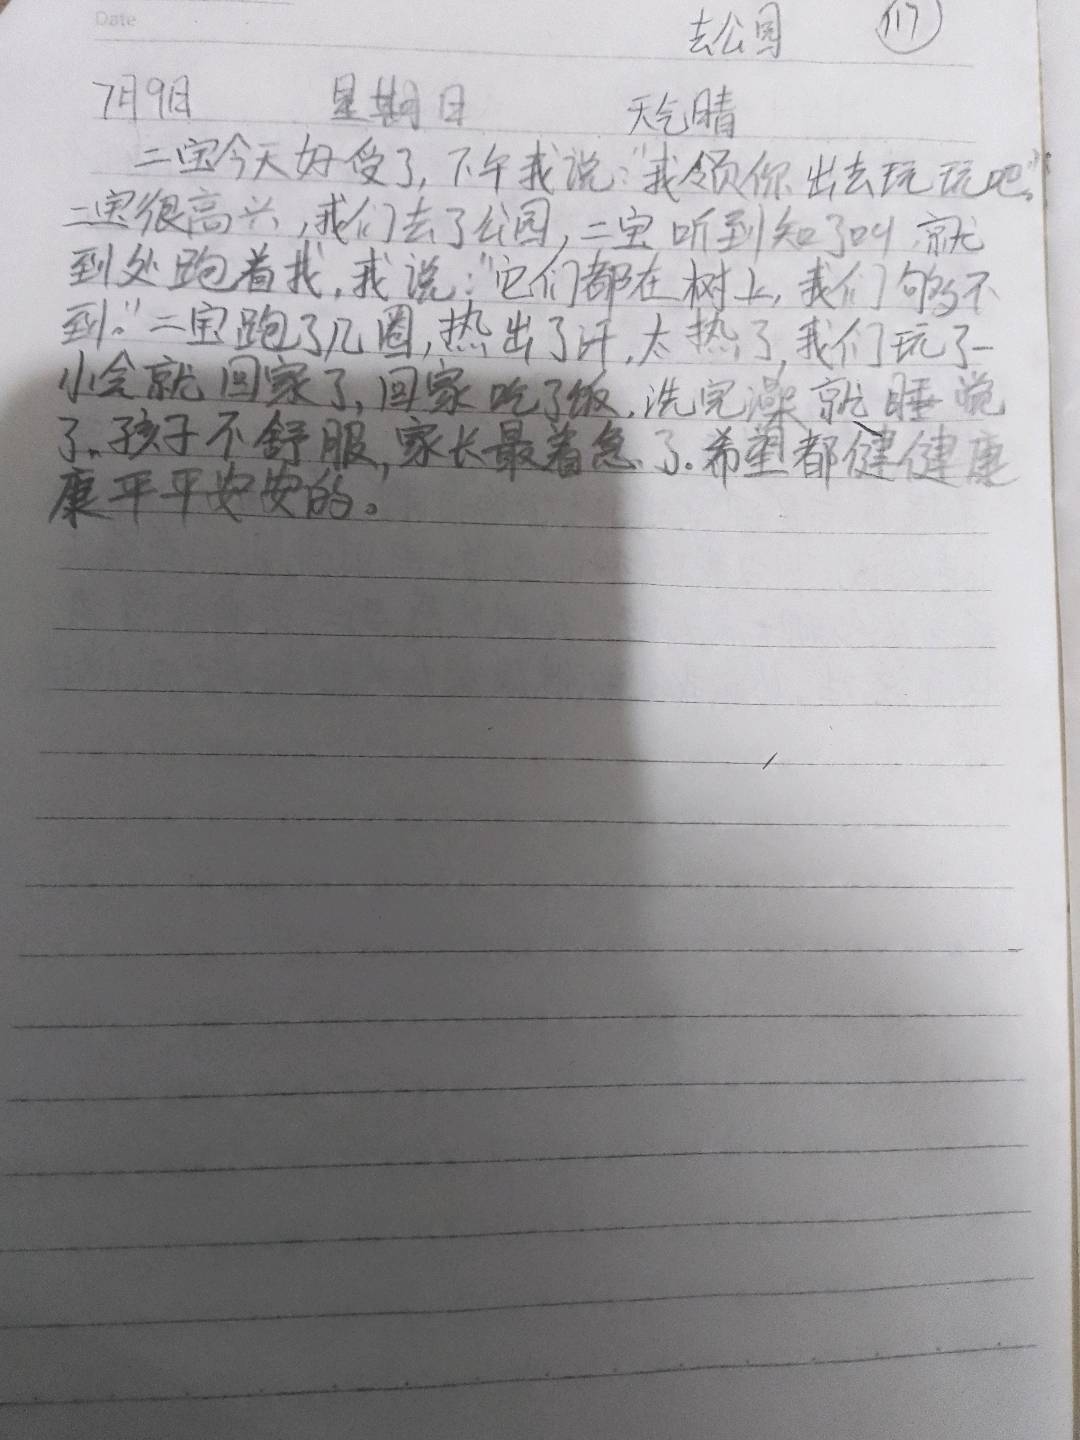 Date
去公园 117
7月9日 星期日 天气晴
二宝今天好受了,下午我说:“我领你出去玩玩吧。”
二宝很高兴,我们去了公园,二宝听到知了叫,就
到处跑着找,我说:“它们都在树上,我们够不
到。”二宝跑了几圈,热出了汗,太热了,我们玩了一
小会就回家了,回家吃了饭,洗完澡就睡觉
了。孩子不舒服,家长最着急了。希望都健健康
康平平安安的。